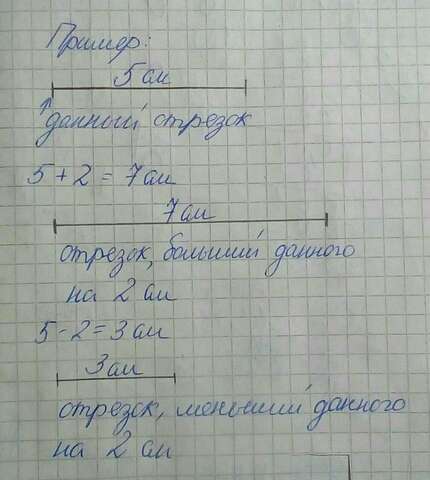 Пример:
5 см
данный отрезок
5 + 2 = 7 см
7 см
отрезок, больший данного
на 2 см
5 - 2 = 3 см
3 см
отрезок, меньший данного
на 2 см